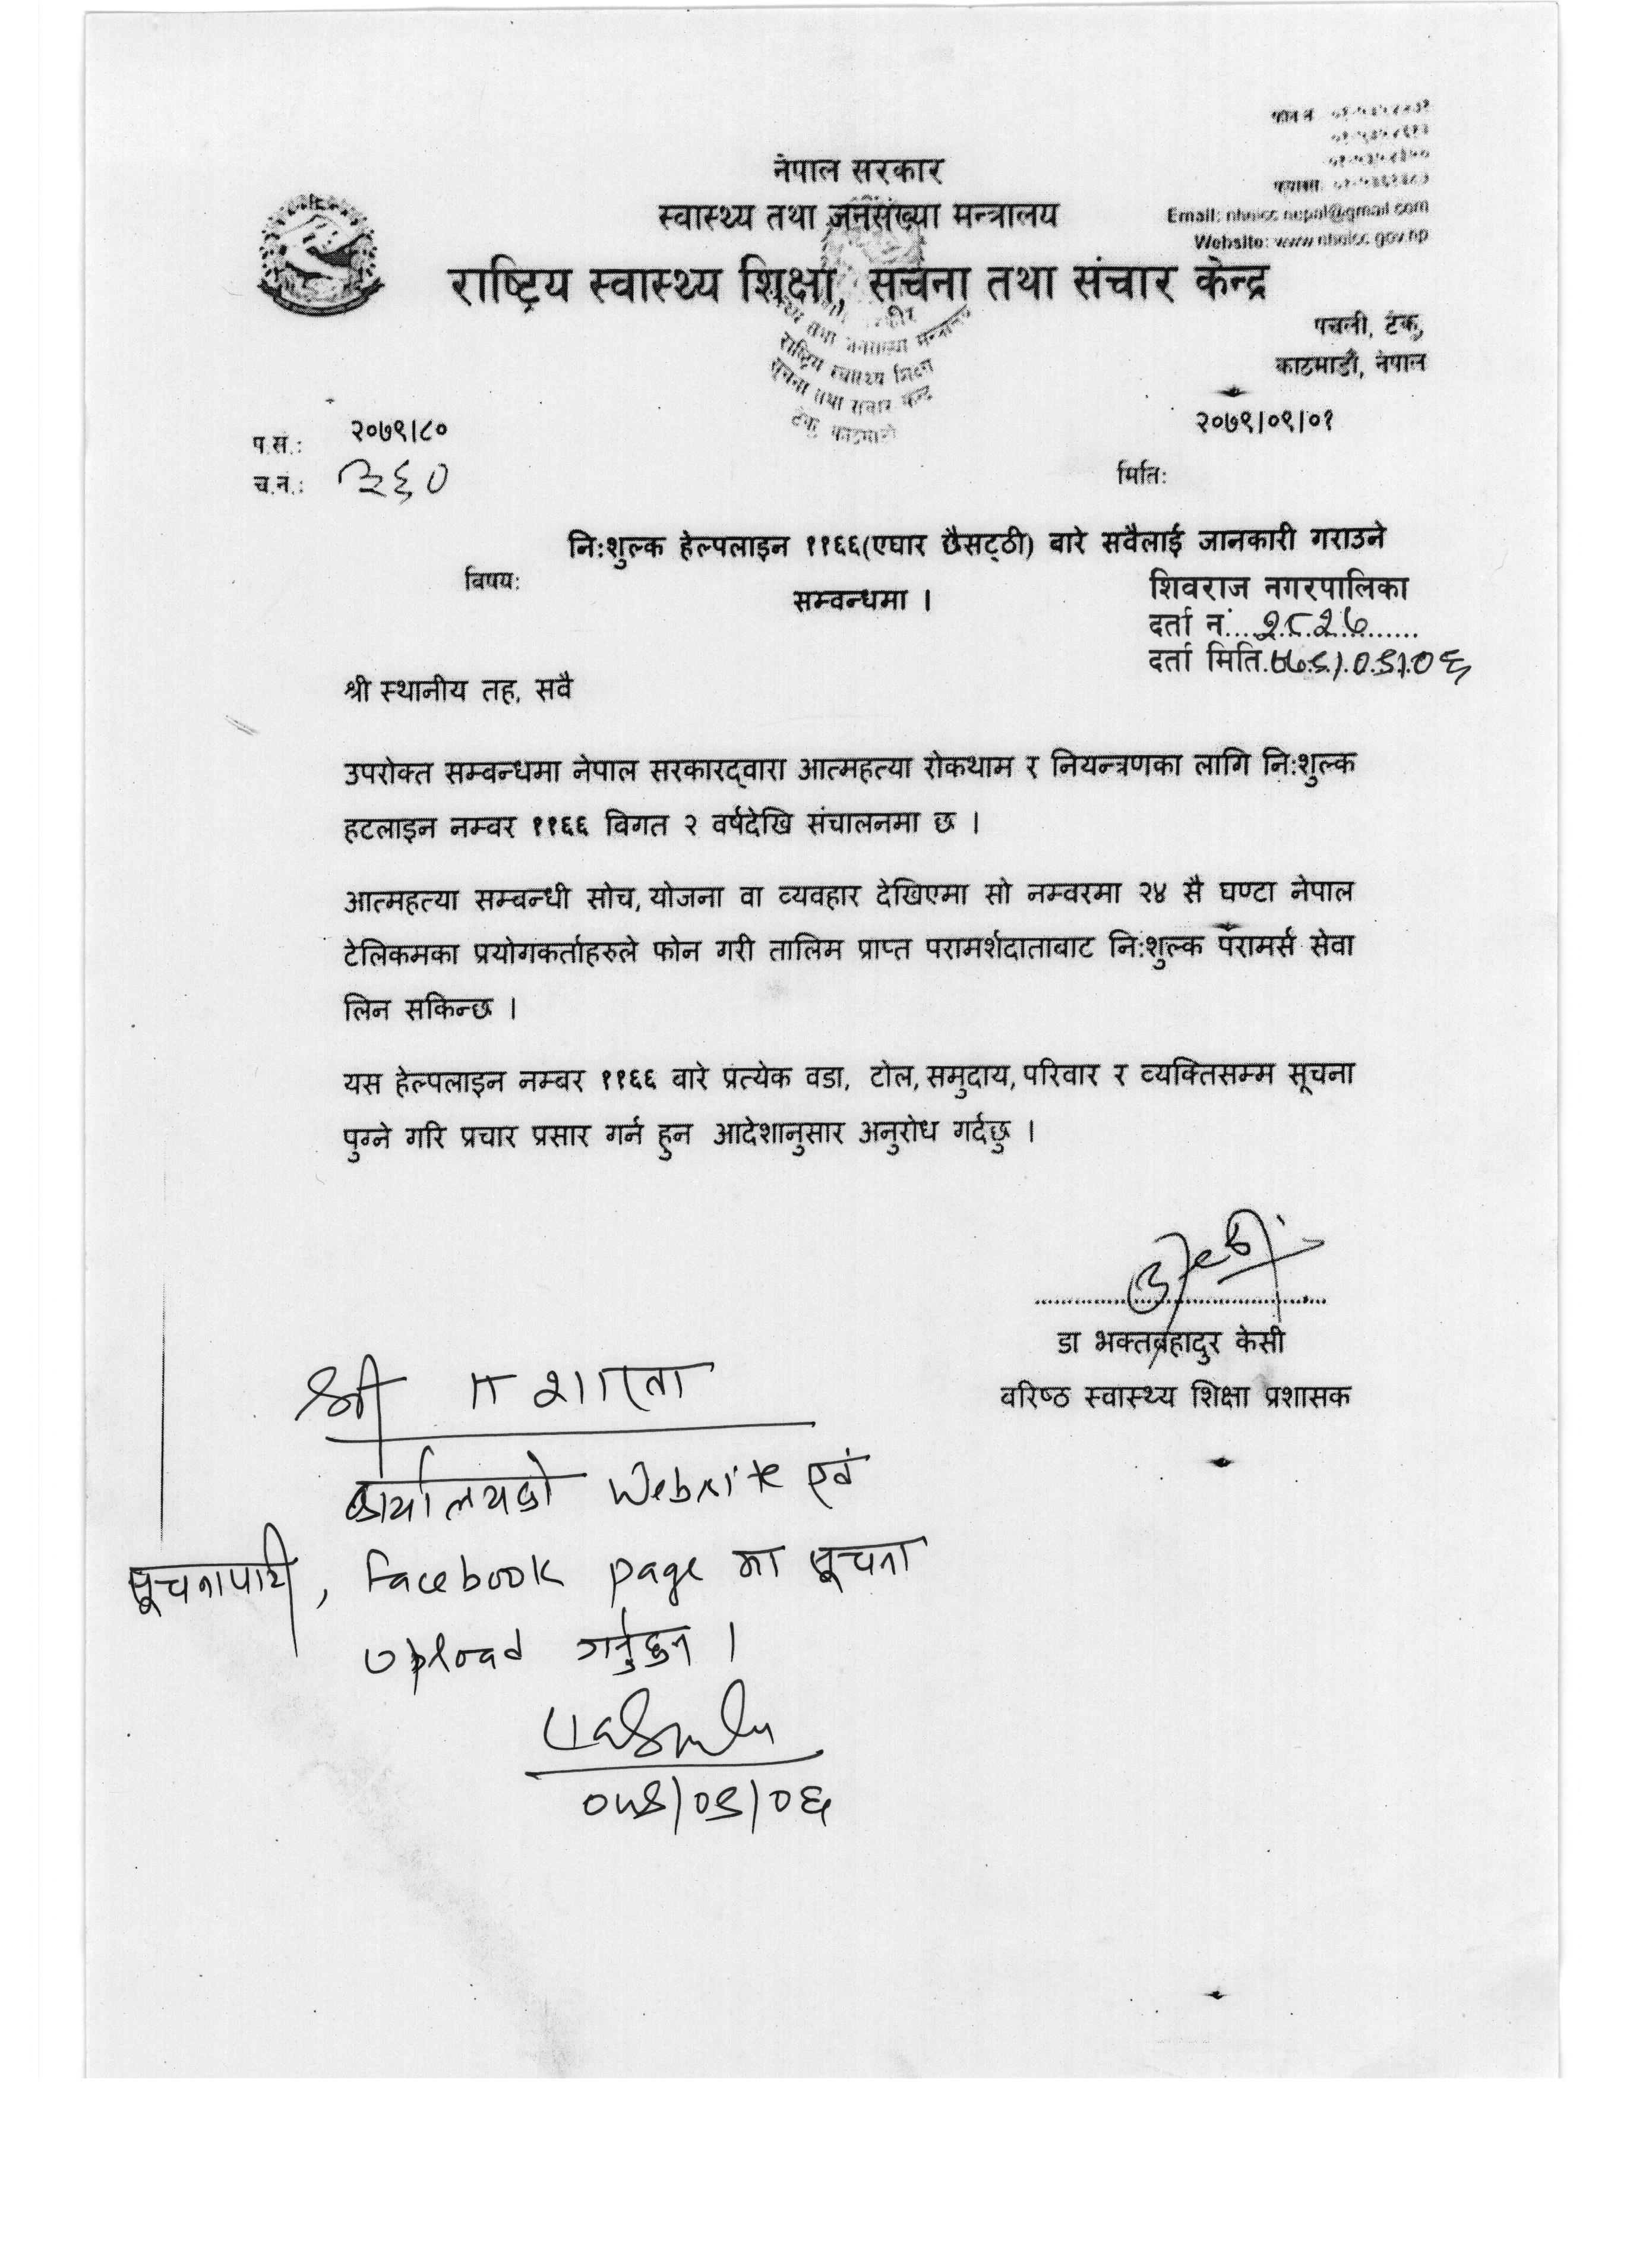 नेपाल सरकार
स्वास्थ्य तथा जनसंख्या मन्त्रालय
राष्ट्रिय स्वास्थ्य शिक्षा, सूचना तथा संचार केन्द्र
फोन नं
Email: nheicc.nepal@gmail.com
Website: www.nheicc.gov.np
पचली, टेकु,
काठमाडौं, नेपाल
स्वास्थ्य तथा जनसंख्या मन्त्रालय
राष्ट्रिय स्वास्थ्य शिक्षा
सूचना तथा संचार केन्द्र
टेकु, काठमाडौं
प.सं.: २०७९।८०
च.नं.: ३६०
२०७९।०९।०१
मितिः
निःशुल्क हेल्पलाइन ११६६(एघार छैसट्ठी) बारे सवैलाई जानकारी गराउने
विषयः
सम्वन्धमा ।
शिवराज नगरपालिका
दर्ता नं....२८२७
दर्ता मिति.०७९।०९।०६
श्री स्थानीय तह, सवै
उपरोक्त सम्वन्धमा नेपाल सरकारद्वारा आत्महत्या रोकथाम र नियन्त्रणका लागि निःशुल्क
हटलाइन नम्वर ११६६ विगत २ वर्षदेखि संचालनमा छ ।
आत्महत्या सम्वन्धी सोच, योजना वा व्यवहार देखिएमा सो नम्वरमा २४ सै घण्टा नेपाल
टेलिकमका प्रयोगकर्ताहरुले फोन गरी तालिम प्राप्त परामर्शदाताबाट निःशुल्क परामर्स सेवा
लिन सकिन्छ ।
यस हेल्पलाइन नम्बर ११६६ बारे प्रत्येक वडा, टोल, समुदाय, परिवार र व्यक्तिसम्म सूचना
पुग्ने गरि प्रचार प्रसार गर्न हुन आदेशानुसार अनुरोध गर्दछु ।
डा भक्तबहादुर केसी
वरिष्ठ स्वास्थ्य शिक्षा प्रशासक
श्री शाखा
कार्यालयको Website एवं
सूचनापाटी, Facebook page मा सूचना
Upload गर्नुहुन ।
०७९।०९।०६